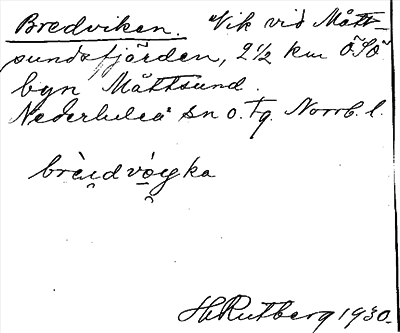 Bredviken. Vik vid Mått-
sundsfjärden, 2 1/2 km ÖSÖ
byn Måttsund.
Nederluleå sn o. tg. Norrb. l.
H Rutberg 1930.